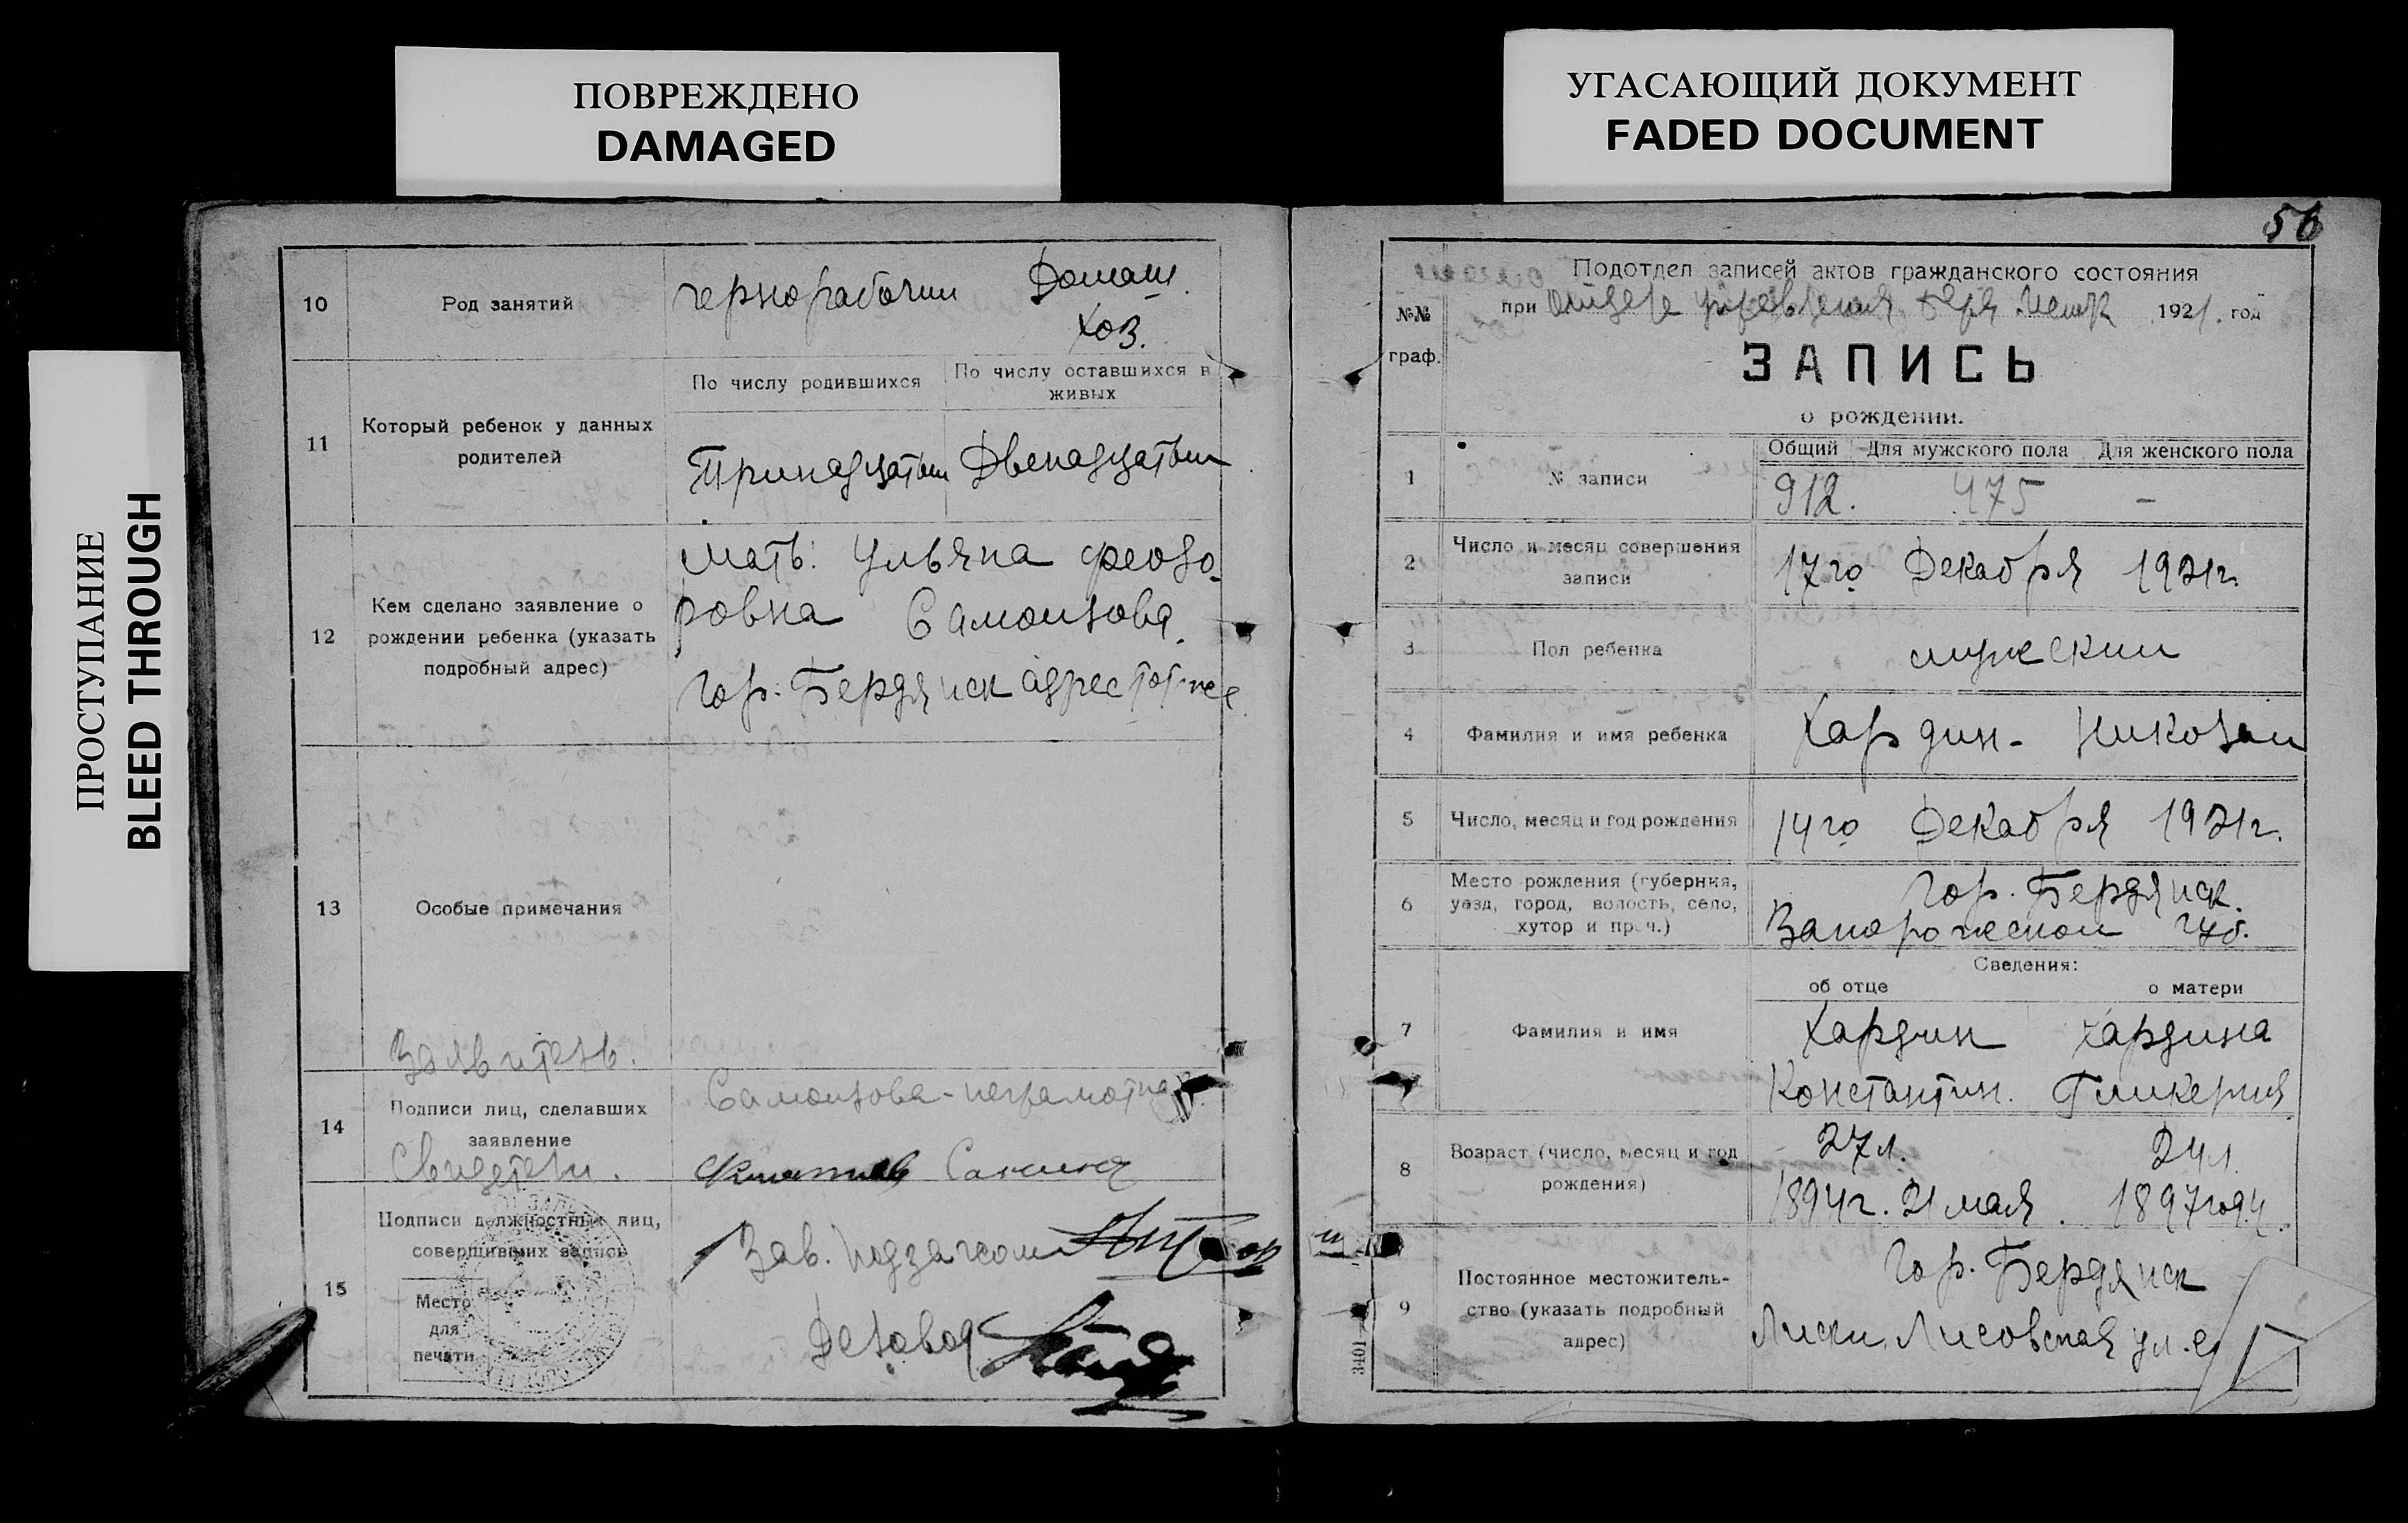 ПОВРЕЖДЕНО
DAMAGED
УГАСАЮЩИЙ ДОКУМЕНТ
FADED DOCUMENT
ПРОСТУПАНИЕ
BLEED THROUGH
10 Род занятий чернорабочий Домаш.
хоз.
11 Который ребенок у данных родителей
По числу родившихся По числу оставшихся в живых
Тринадцатый Двенадцатый
12 Кем сделано заявление о рождении ребенка (указать подробный адрес)
Мать: Ульяна Феодо-
ровна Самойлова.
Гор. Бердянск адрес тот же
13 Особые примечания
Заявитель.
14 Подписи лиц, сделавших заявление
Самойлова-неграмотна
Свидетели.
15 Подписи должностных лиц, совершивших запись
Зав. подзагсом
Место
для
печати
Деловод
56
Подотдел записей актов гражданского состояния
№№ граф.
при отделе управления 1921. год
ЗАПИСЬ
о рождении.
1 № записи
Общий Для мужского пола Для женского пола
912. 475 –
2 Число и месяц совершения записи
17го Декабря 1921г.
3 Пол ребенка
мужский
4 Фамилия и имя ребенка
Хардин- Николай
5 Число, месяц и год рождения
14го Декабря 1921г.
6 Место рождения (губерния, уезд, город, волость, село, хутор и проч.)
Гор. Бердянск.
Запорожской губ.
Сведения:
об отце о матери
7 Фамилия и имя
Хардин Хардина
Константин. Гликерия
8 Возраст (число, месяц и год рождения)
27л. 24л.
1894г. 21 мая. 1897года.
9 Постоянное местожительство (указать подробный адрес)
Гор. Бердянск
Лиски Лисовская ул.
3401